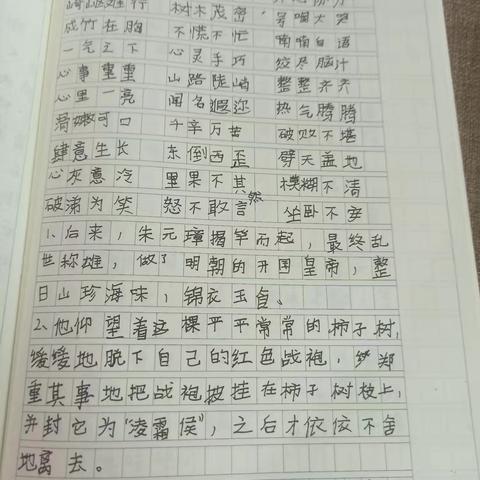 崎岖难行 树木茂密
成竹在胸 不慌不忙 号啕大哭
一气之下 心灵手巧 喃喃自语
心事重重 山路陡峭 绞尽脑汁
心里一亮 闻名遐迩 整整齐齐
滑嫩可口 千辛万苦 热气腾腾
肆意生长 东倒西歪 破败不堪
心灰意冷 果不其然 劈天盖地
破涕为笑 怒不敢言 模糊不清
坐卧不安
1、后来，朱元璋揭竿而起，最终乱
世称雄，做了明朝的开国皇帝，整
日山珍海味，锦衣玉食。
2、他仰望着这棵平平常常的柿子树，
缓缓地脱下自己的红色战袍，郑
重其事地把战袍披挂在柿子树枝上，
并封它为“凌霜侯”，之后才依依不舍
地离去。